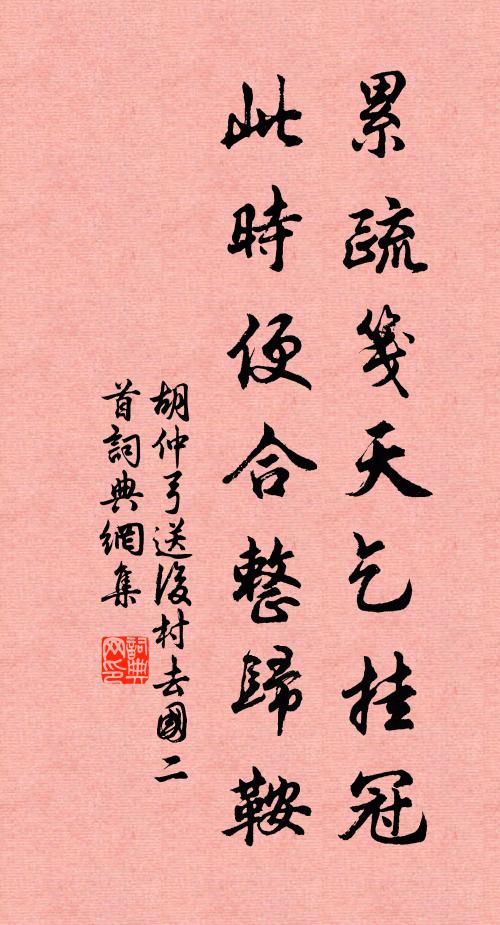 累疏箋天乞挂冠
此時便合整歸鞍
胡仲弓送後村去國二
首詞典網集
詞典
网印